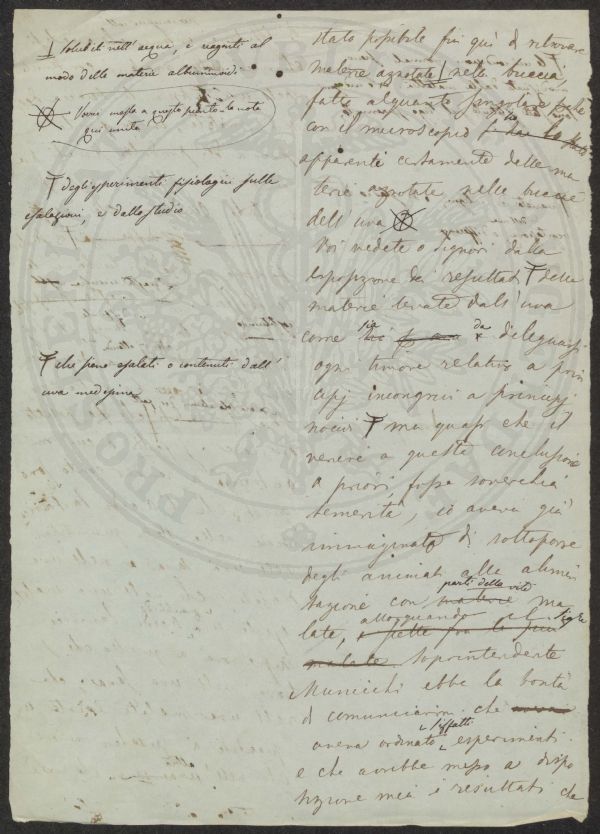 ⊥ solubili nell'acqua, e reagenti al
modo delle materie albuminoidi
Verrà messa a questo punto la nota
qui unita
T degli esperimenti fisiologici sulle
esalazioni, e dallo studio
T che siene esalati o contenuti dall'
uva medesima
stato possibile fin quì di ritrovare
materie azotate ⊥ nelle buccia
fatto alquanto singolare
con il microscopio
apparenti certamente delle ma
terie azotate nelle buccie
dell'uva
Voi vedete o signori dalla
esposizione dei resultati T delle
materie levate dall'uva
come sia da dileguarsi
ogni timore relativo a prin
cipj incongrui a principj
nocivi T ma quasi che il
venire a queste conclusioni
a priori, fosse soverchia
temerità, io aveva già
immaginato di sottoporre
degli animali alla alimen
tazione con parti della vite ma
late, allorquando il Sigre
Soprintendente
Municchi ebbe la bontà
di comunicarmi che
aveva ordinato siffatti esperimenti
e che avrebbe messo a dispo
sizione mia i resultati che